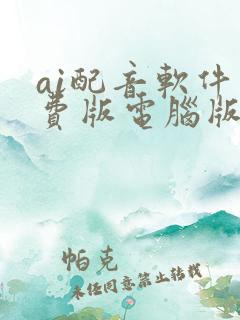 ai配音軟件
費版電腦版
帕克
未任同意禁止转载